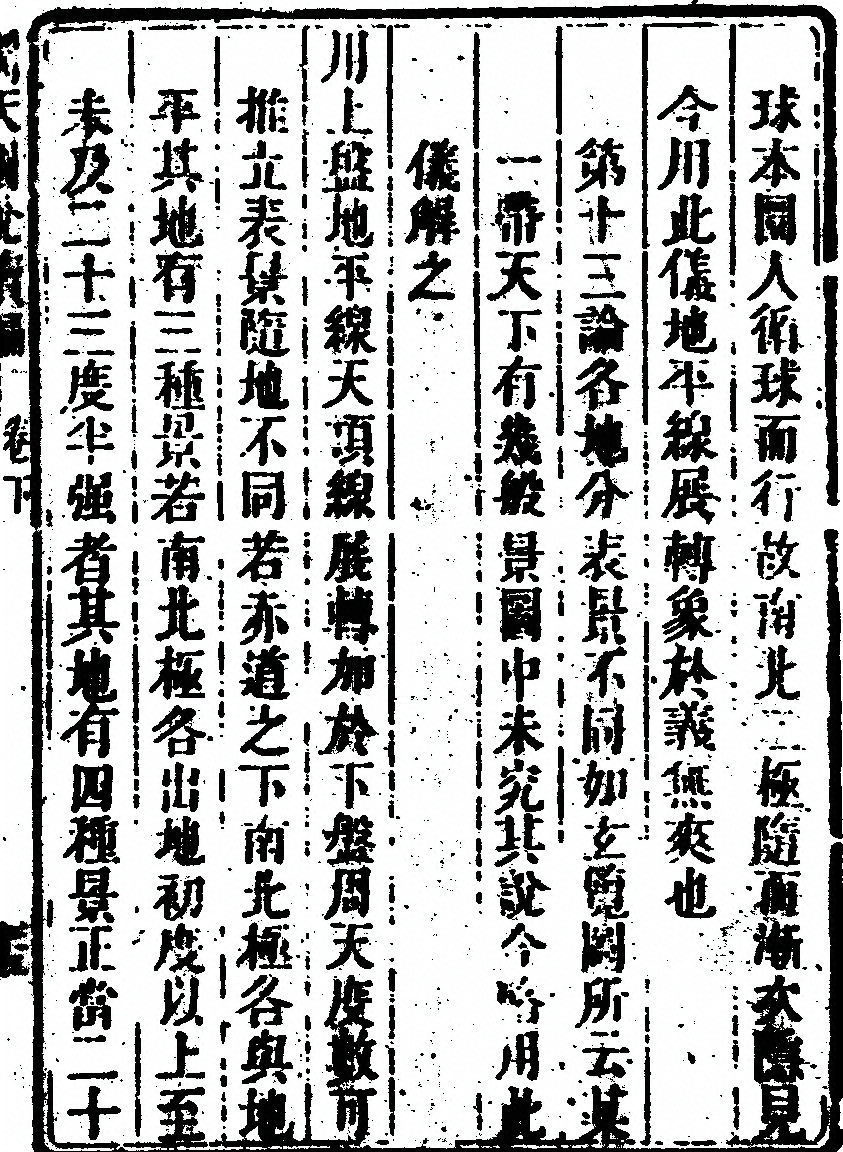 球本圜人循球而行故南北二極隨而漸次隱見
今用此儀地平線展轉象於義無爽也
第十三論各地分表景不同如玄覽圖所云某
一帶天下有幾般景圖中未究其說今略用此
儀解之
用上盤地平線天頂線展轉加於下盤周天度數可
推立表景隨地不同若赤道之下南北極各與地
平其地有三種景若南北極各出地初度以上至
未及二十三度半强者其地有四種景正當二十
卷下